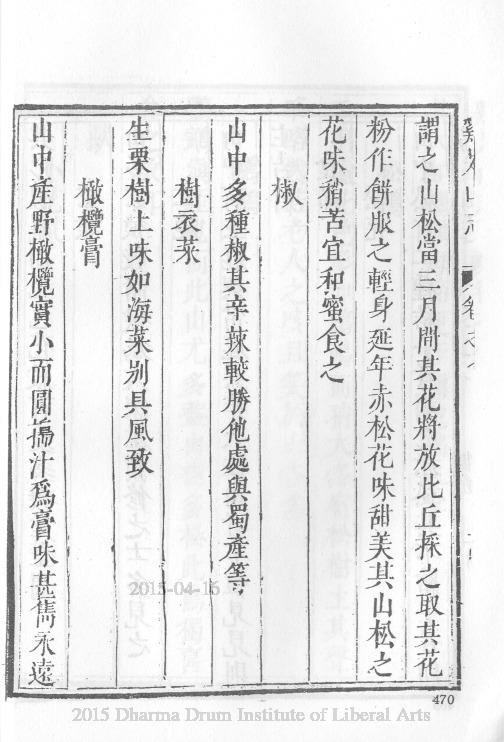 謂之山松當三月間其花將放比丘採之取其花
粉作餅服之輕身延年赤松花味甜美其山松之
花味稍苦宜和蜜食之
椒
山中多種椒其辛辣較勝他處與蜀產等
樹衣菜
生栗樹上味如海菜别具風致
橄欖膏
山中產野橄欖實小而圓擣汁為膏味甚雋永遠
2015-04-15
470
2015 Dharma Drum Institute of Liberal Arts